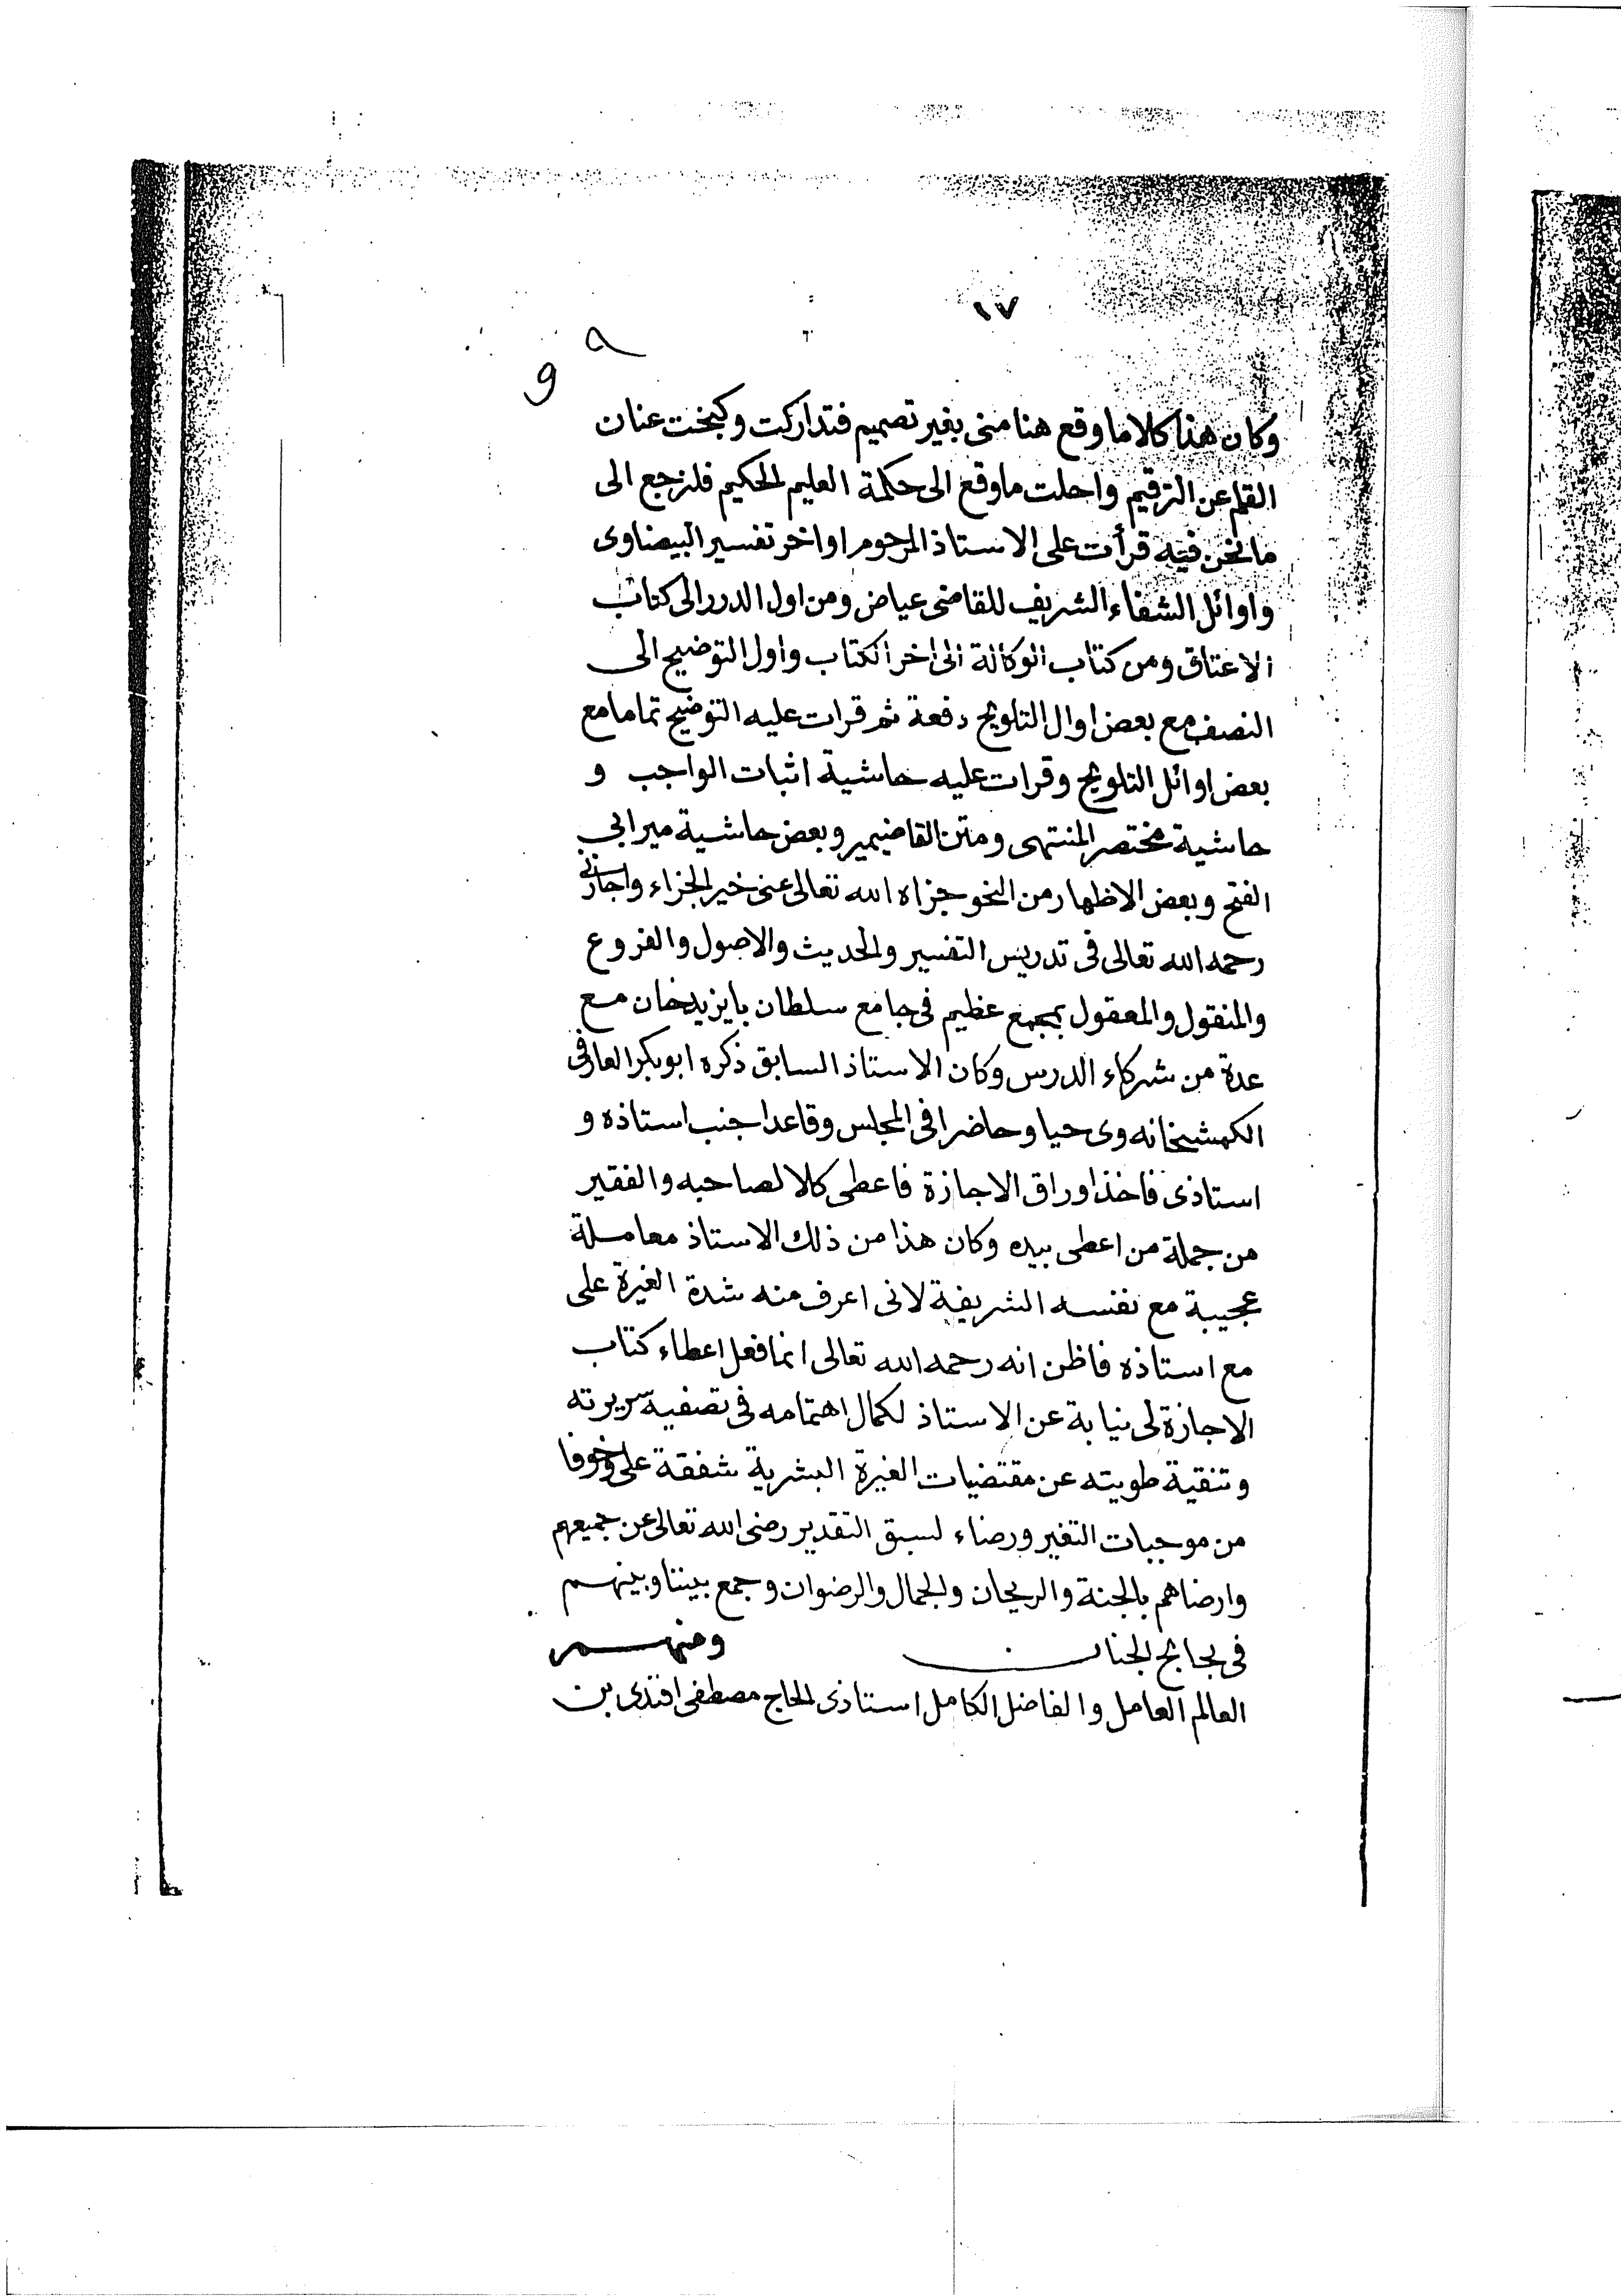 ١٧
٩
وكان هذا كلاما وقع هنا منى بغير تصميم فتداركت وكبخت عنان
القلم عن الترقيم واحلت ما وقع الى حكمة العليم الحكيم فلنرجع الى
ما نحن فيه قرأت على الاستاذ المرحوم اواخر تفسير البيضاوى
واوائل الشفاء الشريف للقاضى عياض ومن اول الدرر الى كتاب
الاعتاق ومن كتاب الوكالة الى اخر الكتاب واول التوضيح الى
النصف مع بعض اوال التلويح دفعة ثم قرات عليه التوضيح تماما مع
بعض اوائل التلويح وقرات عليه حاشية اثبات الواجب و
حاشية مختصر المنتهى ومتن القاضيمير وبعض حاشية مير ابي
الفتح وبعض الاظهار من النحو جزاه الله تعالى عنى خير الجزاء واجازنى
رحمه الله تعالى فى تدريس التفسير والحديث والاصول والفروع
والمنقول والمعقول بمجمع عظيم فى جامع سلطان بايزيد خان مع
عدة من شركاء الدرس وكان الاستاذ السابق ذكره ابو بكر العارفى
الكهشخانه وى حيا وحاضرا فى المجلس وقاعدا جنب استاذه و
استاذى فاخذ اوراق الاجازة فاعطى كلا لصاحبه والفقير
من جملة من اعطى بيده وكان هذا من ذلك الاستاذ معاملة
عجيبة مع نفسه الشريفة لانى اعرف منه شدة الغيرة على
مع استاذه فاظن انه رحمه الله تعالى انما فعل اعطاء كتاب
الاجازة لى نيابة عن الاستاذ لكمال اهتمامه فى تصفية سريرته
وتنقية طويته عن مقتضيات الغيرة البشرية شفقة على وخوفا
من موجبات التغير ورضاء لسبق التقدير رضى الله تعالى عن جميعهم
وارضاهم بالجنة والريحان والجمال والرضوان وجمع بيننا وبينهم
فى بحابح الجنان ومنهم
العالم العامل والفاضل الكامل استاذى الحاج مصطفى افندى بن